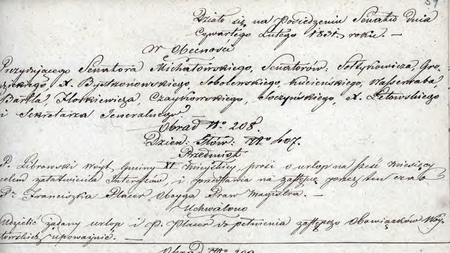 Działo się na Posiedzeniu Senatu dnia
Czwartego Lutego 183 roku. —
W Obecności
Prezydującego Senatora Michałowskiego, Senatorów, Sołtykowicza, Gro-
dzickiego X. Bystrzonowskiego Sobolewskiego, Kucieńskiego, Haller
Bartla Florkiewicza Czaykowskiego, Soczyńskiego, X. Łętowskiego
i Sekretarza Generalnego
Obrad No 208.
Dzien: Głów: No 407.
Przedmiot
P. Librowski Woyt Gminy VI Mieyskiey prosi o urlop na sześć miesięcy
celem załatwienia Interesów i przedstawia na zastępcę przez ten czas
P. Franciszka Placer Oboyga Praw Magistra. —
Uchwalono
Udzielić żądany urlop i P. Placer do pełnienia zastępczo Obowiązków Woy-
towskich upoważnić. —
Obrad No 209